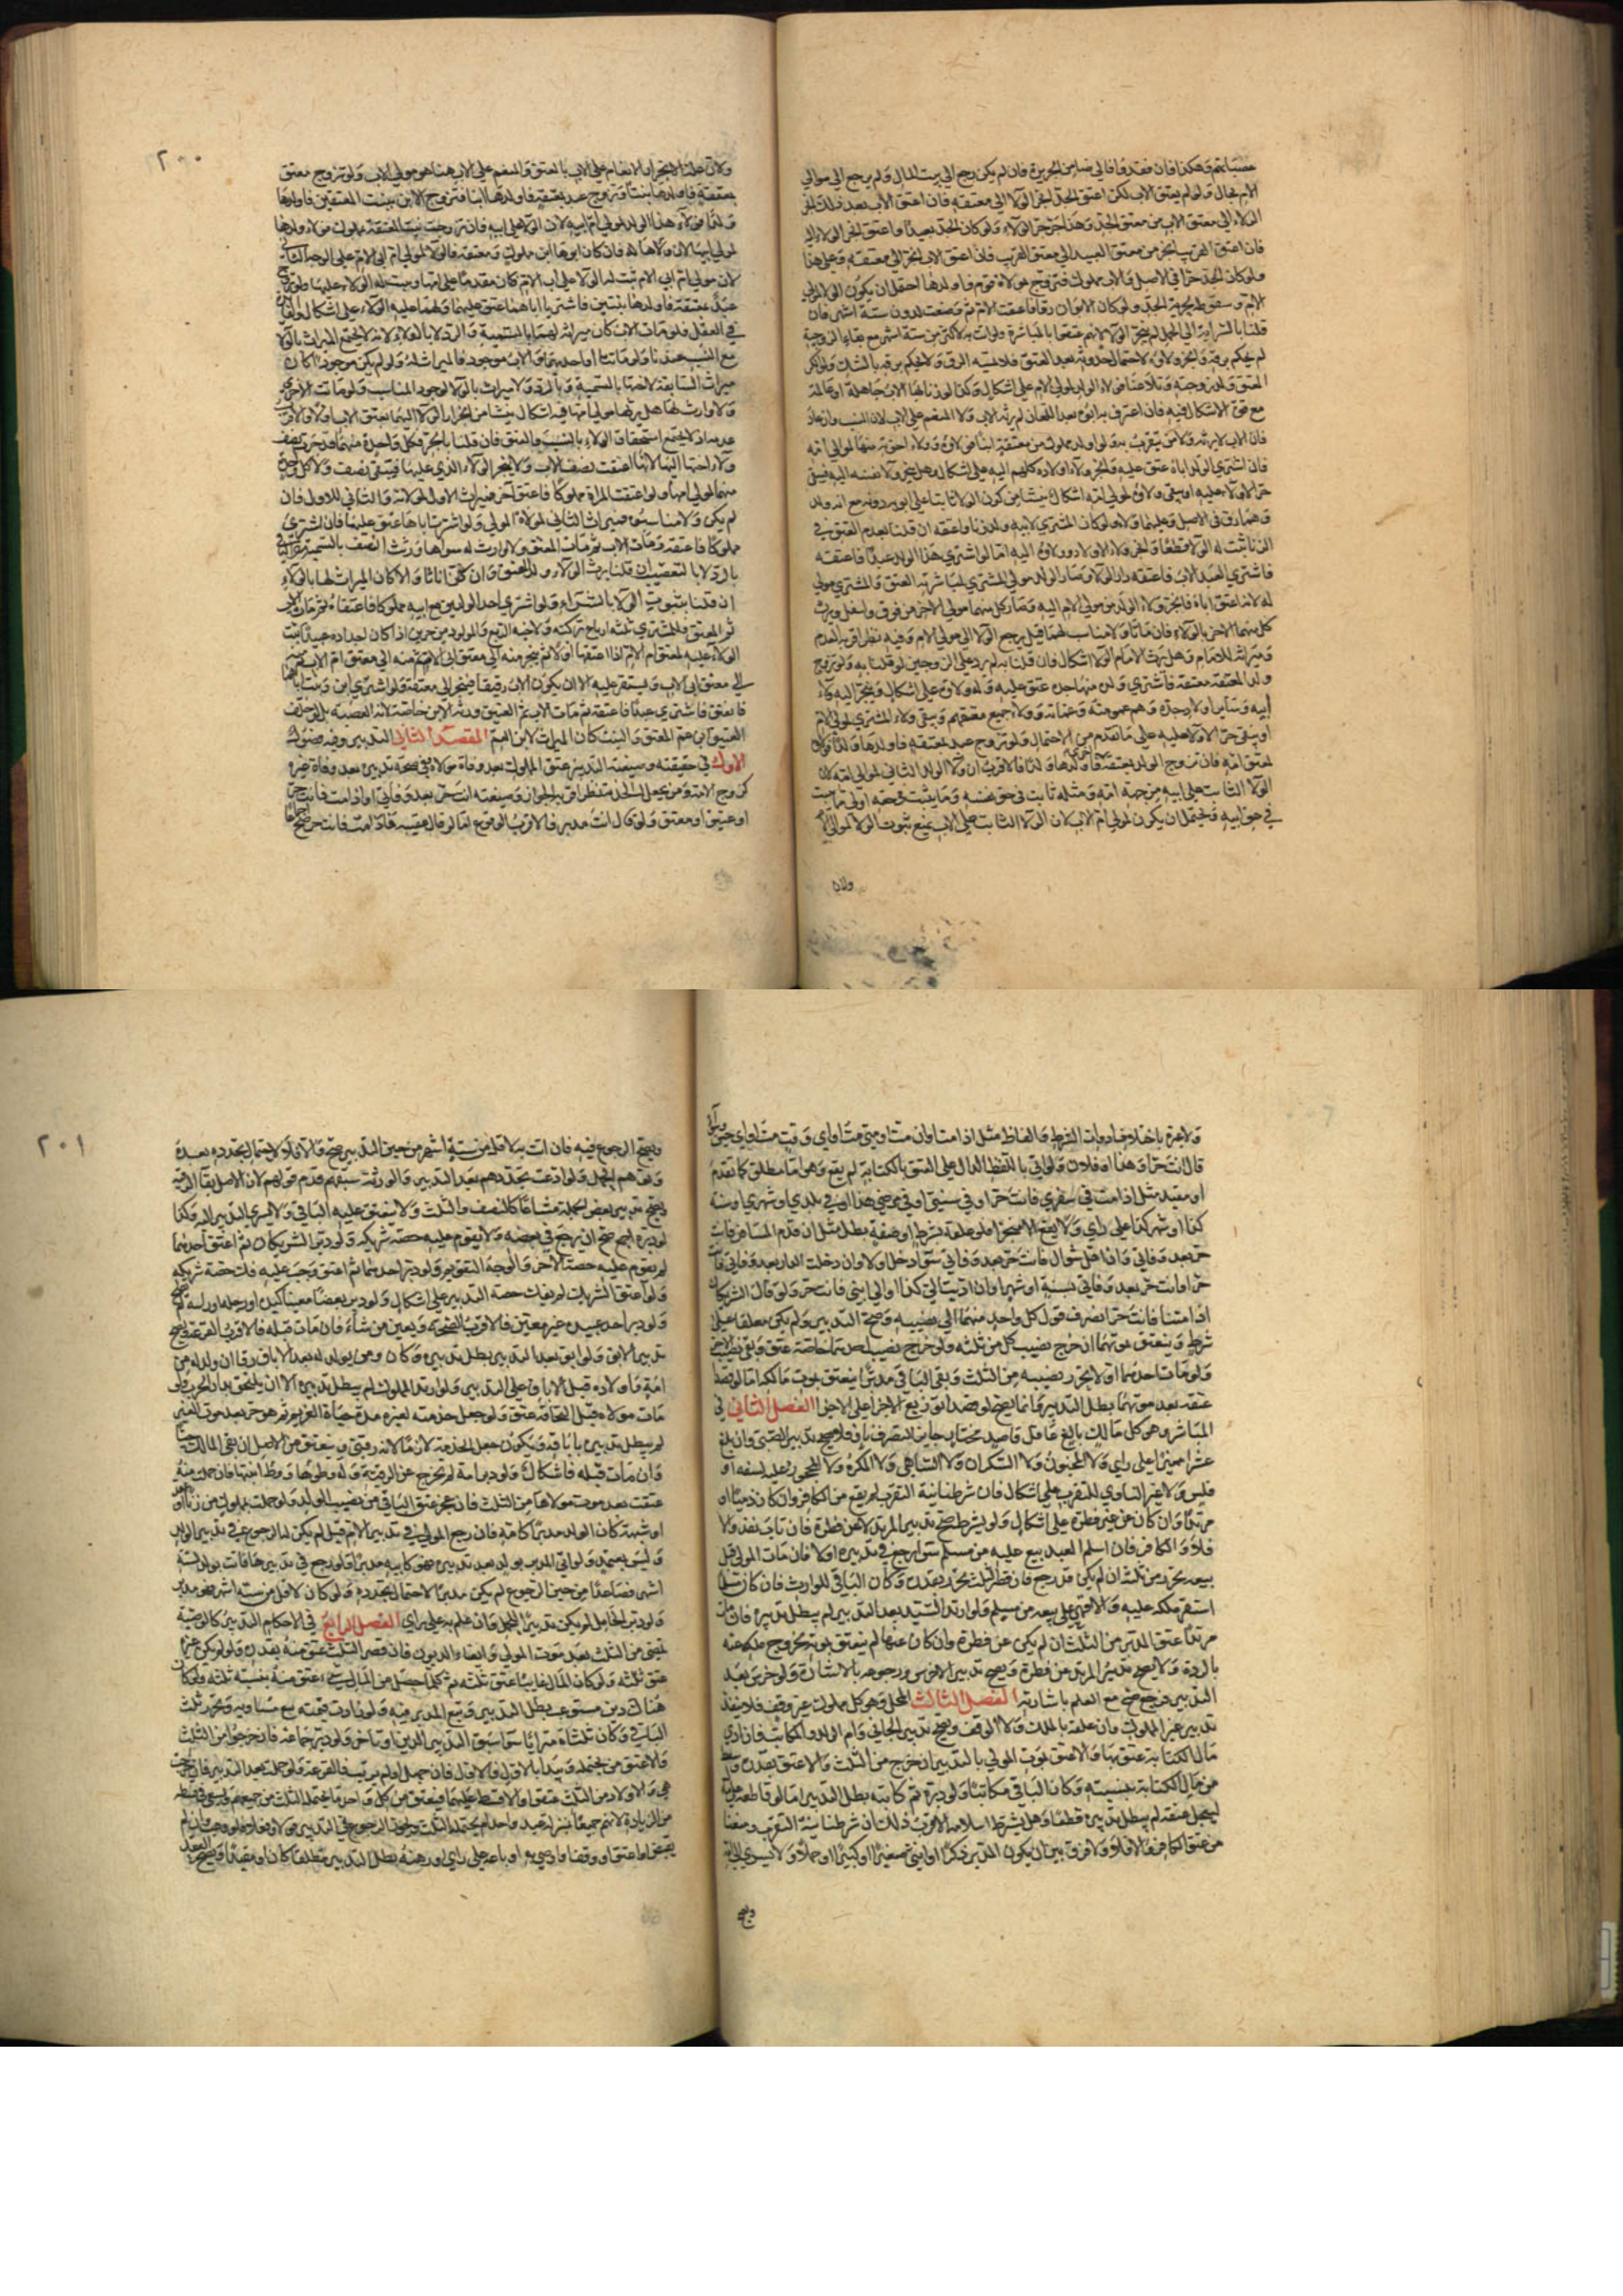 عصباتهم وهكذا فان فقد وفالى ضامن الجريرة فان لم يكن رجع الى بيت المال ولم يرجع الى موالى
الام بحال ولو لم يعتق الاب لكن اعتق الجد انجر الولاء الى معتقه فان اعتق الاب بعد ذلك انجر
الولاء الى معتق الاب من معتق الجد وهذا جر جر الولاء ولو كان الجد بعيدا واعتق انجر الولاء اليه
فان اعتق القريب انجر من معتق البعيد الى معتق القريب فان اعتق الاب انجر الى معتقه وعلى هذا
ولو كان الجد حرا فى الاصل والاب مملوك فتزوج مولاة قوم فاولدها احتمل ان يكون الولاء لمولى
الام وسقوطه بحرية الجد ولو كان الابوان رقا فاعتقت الام ثم وضعت لدون ستة اشهر فان
قلنا بالسراية الى الحمل لم ينجر الولاء لانهم عتقوا بالمباشرة ولو اتت به لاكثر من ستة اشهر مع بقاء الزوجية
لم يحكم برقه وانجر ولاؤه لاحتمال حدوثه بعد العتق فلا يمسه الرق ولا يحكم برقه بالشك ولو انكر
المعتق ولد زوجته وتلاعنا فولاء الولد لمولى الام على اشكال وكذا لو زنا بها الاب جاهلة او عالمة
مع قوة الاشكال فيه فان اعترف به ابوه بعد اللعان لم يرثه الاب ولا المنعم على الاب لان النسب وان عاد
فان الاب لا يرثه ولا من يتقرب به ولو اولد مملوك من معتقة ابنا فولاؤه وولاء اخوته منها لمولى امه
فان اشترى الولد اباه عتق عليه وانجر ولاء اولاده كلهم اليه على اشكال وهل ينجر ولاء نفسه اليه فيبقى
حرا لا ولاء عليه او يبقى ولاؤه لمولى امه اشكال ينشا من كون الولاء ثابتا على ابويه دونه مع انه ولد
وهما رق فى الاصل وعليهما ولاء ولو كان المشترى لابيه ولد زنا واعتقه ان قلنا بعدم العتق فى
الزنا ثبت له الولاء قطعا وانجر ولاء الاولاد وولاؤه اليه اما لو اشترى هذا الولد عبدا فاعتقه
فاشترى العبد الاب فاعتقه دار الولاء وصار الولد مولى المشترى لمباشرته العتق والمشترى مولى
له لانه اعتق اباه فانجر ولاء الولد من مولى الام اليه وصار كل منهما مولى الاخر من فوق واسفل ويرث
كل منهما الاخر بالولاء فان ماتا ولا مناسب لهما قيل يرجع الولاء الى مولى الام وفيه نظر اقربه العدم
وميراثه للامام وهل يرث الامام الولاء اشكال فان قلنا به لم يرد على الزوجين لو قلنا به ولو تزوج
ولد المعتقة معتقة فاشترى ولده منها جده عتق عليه وله ولاؤه على اشكال وينجر اليه ولاء
ابيه وساير اولاد جده وهم عمومته وعماته وولاء جميع معتقهم ويبقى ولاء المشترى لمولى الام
او يبقى حرا لا ولاء عليه على ما تقدم من الاحتمال ولو تزوج عبد بمعتقة فاولدها ولدا فولاؤه
لمعتق امه فان تزوج الولد بمعتقة اخرى فاولدها ولدا فالاقرب ان ولاء الولد الثانى لموالى امه لان
الولاء الثابت على ابيه من جهة امه ومثله ثابت فى حق نفسه وما يثبت فى حقه اولى مما يثبت
فى حق ابيه ويحتمل ان يكون لمولى ام الاب لان الولاء الثابت على الاب يمنع ثبوت الولاء لموالى الام
ولان
٢٠٠
ولان علة الانجرار الانعام على الاب بالعتق والمنعم على الاب هنا هو مولى الاب ولو تزوج معتق
بمعتقة فاولدها بنتا وتزوج عبد بمعتقة فاولدها ابنا فتزوج الابن ببنت المعتقين فاولدها
ولدا فولاء هذا الولد لمولى ام ابيه لان الولاء على ابيه فان تزوجت بنت المعتقة بمملوك فولاء ولدها
لمولى ابيها لان ولاءها له فان كان ابوها ابن مملوك ومعتقة فالولاء لمولى ام ابى الام على الوجه الثانى
لان مولى ام ابى الام ثبت له الولاء على اب الام كان مقدما على امها ويثبت له الولاء عليها ولو تزوج
عبد بمعتقة فاولدها بنتين فاشتريا اباهما عتق عليهما ولهما عليه الولاء على اشكال والفائدة
فى العقل فلو مات الاب كان ميراثه لهما بالتسمية والرد لا بالولاء لانه لا يجتمع الميراث بالولاء
مع النسب عندنا ولو ماتتا او احدهما والاب موجود فالميراث له ولو لم يكن موجودا كان
ميراث السابقة لاختها بالتسمية وبالرد ولا ميراث بالولاء لوجود المناسب ولو ماتت الاخرى
ولا وارث لها هل يرثها مولى امها فيه اشكال ينشا من انجرار الولاء اليهما بعتق الاب اولا والاقرب
عدمه اذ لا يجتمع استحقاق الولاء بالنسب والعتق فان قلنا بالجر فكل واحدة منهما قد جرت نصف
ولاء اختها اليها لانها اعتقت نصف الاب ولا ينجر الولاء الذى عليها فيبقى نصف ولاء كل واحدة
منهما لمولى امها ولو اعتقت المراة مملوكا فاعتق اخر فميراث الاول لمولاته والثانى للاول فان
لم يكن ولا مناسبوه فميراث الثانى لمولاة المولى ولو اشترتا اباها عتق عليها فان اشترى
مملوكا فاعتقه ومات الاب ثم مات المعتق ولا وارث له سواها ورثت النصف بالتسمية والباقى
بالرد لا بالتعصيب ان قلنا يرث الولاء ولد المعتق وان كن اناثا والا كان الميراث لها بالولاء
ان قلنا بثبوت الولاء بالشراء ولو اشترى احد الولدين مع ابيه مملوكا فاعتقاه ثم مات الاب
ثم المعتق فللمشترى ثلثه ارباح تركته ولاخيه الربع والمولود من حرين اذا كان اجداده عبيدا يثبت
الولاء عليه لمعتق ام الام اذا اعتقها اولا ثم ينجر منه الى معتق ابى الام ثم منه الى معتق ام الاب ثم
الى معتق ابى الاب ويستقر عليه الا ان يكون الاب رقيقا فينجر الى معتقه ولو اشترى ابن وبنت اباهما
فانعتق فاشترى عبدا فاعتقه ثم مات الاب ثم العتيق ورثه الابن خاصة لانه العصبه بل لو خلف
العتيق ابن عم المعتق والبنت كان الميراث لابن العم المقصد الثانى التدبير وفيه فصول
الاول فى حقيقته وصيغته التدبير عتق المملوك بعد وفاة مولاه وفى صحة تدبيره بعد وفاة غيره
كزوج الامة ومن يجعل له الخدمة نظر اقربه الجواز وصيغته انت حر بعد وفاتى او اذا مت فانت حر
او عتيق او معتق ولو قال انت مدبر فالاقرب الوقوع اما لو قال عقيبه فاذا مت فانت حر صح اجماعا
ولا عبرة باختلاف ادوات الشرط والفاظ مثل اذا مت او ان مت او متى مت او اى وقت مت او اى حين وسواء
قال انت حر او هذا او فلان ولو اتى باللفظ الدال على العتق بالكتابة لم يقع وهو اما مطلق كما تقدم
او مقيد مثل اذا مت فى سفرى فانت حر او فى سنتى او فى مرضى هذا او فى بلدى او شهرى او سنة
كذا او شهر كذا على راى ولا يقع الا منجزا فلو علقه بشرط او صفة بطل مثل ان قدم المسافر فانت
حر بعد وفاتى وان اهل شوال فانت حر بعد وفاتى سواء دخل اولا وان دخلت الدار بعد وفاتى فانت
حر او انت حر بعد وفاتى بسنة او شهر او ان اديت الى كذا او الى ابنى فانت حر ولو قال الشريكان
اذا متنا فانت حر انصرف قول كل واحد منهما الى نصيبه وصح التدبير ولم يكن معلقا على
شرط وينعتق بموتهما ان خرج نصيب كل من ثلثه ولو خرج نصيب احدهما خاصة عتق وبقى نصيب الاخر
ولو مات احدهما اولا تحرر نصيبه من الثلث وبقى الباقى مدبرا ينعتق بموت مالكه اما لو قصدا
عتقه بعد موتهما بطل التدبير وانما يصح لو قصدا توزيع الاجزاء على الاجزاء الفصل الثانى فى
المباشر وهو كل مالك بالغ عاقل قاصد مختار جايز التصرف ناو فلا يصح تدبير الصبى وان بلغ
عشرا مميزا على راى ولا المجنون ولا السكران ولا الساهى ولا المكره ولا المحجور عليه لسفه او
فلس ولا غير الناوى للتقرب على اشكال فان شرطنا نية التقرب لم يقع من الكافر وان كان ذميا او
مرتدا وان كان عن غير فطرة على اشكال ولو لم يشترط صح تدبير المرتد لا عن فطرة فان تاب نفذ والا
فلا والكافر فان اسلم العبد بيع عليه من مسلم سواء رجع فى تدبيره اولا فان مات المولى قبل
بيعه تحرر من ثلثه ان لم يكن قد رجع فان قصر الثلث تحرر بقدره وكان الباقى للوارث فان كان مسلما
استقر ملكه عليه والا قهر على بيعه من مسلم ولو ارتد السيد بعد التدبير لم يبطل تدبيره فان مات
مرتدا عتق المدبر من الثلث ان لم يكن عن فطرة وان كان عنها لم ينعتق بموته لخروج ملكه عنه
بالردة ولا يصح تدبير المرتد عن فطرة ويصح تدبير الاخرس ورجوعه بالاشارة ولو خرس بعد
التدبير فرجع صح مع العلم باشارته الفصل الثالث المحل وهو كل مملوك غير وقف فلا ينفذ
تدبير غير المملوك وان علقه بالملك ولا الوقف ويصح تدبير الجانى وام الولد والمكاتب فان ادى
مال الكتابة عتق بها والا عتق بموت المولى بالتدبير ان خرج من الثلث والا عتق بقدره وسقط
من مال الكتابة بنسبته وكان الباقى مكاتبا ولو دبره ثم كاتبه بطل التدبير اما لو قاطعه على مال
ليعجل عتقه لم يبطل تدبيره قطعا وهل يشترط اسلامه الاقرب ذلك ان شرطنا نية التقرب ومنعنا
من عتق الكافر والا فلا ولا فرق بين ان يكون المدبر ذكرا او انثى صغيرا او كبيرا او حملا ولا يسرى الى امه
ويصح
٢٠١
ويصح الرجوع فيه فان اتت به لاقل من ستة اشهر من حين التدبير صح والا فلا لاحتمال تجدده بعده
وتوهم الحمل ولو ادعت تجددهم بعد التدبير والورثة سبقهم قدم قولهم لان الاصل بقاء الرقية
ويصح تدبير بعض الجملة مشاعا كالنصف والثلث ولا ينعتق عليه الباقى ولا يسرى التدبير اليه وكذا
لو دبره اجمع صح ان يرجع فى بعضه ولا يقوم عليه حصة شريكه ولو دبر الشريكان ثم اعتق احدهما
لم يقوم عليه حصة الاخر والوجه التقويم ولو دبر احدهما ثم اعتق وجب عليه فك حصة شريكه
ولو اعتق الشريك لم يفك حصة التدبير على اشكال ولو دبر بعضا معينا كيده او رجله او راسه لم يصح
ولو دبر احد عبيده غير معين فالاقرب الصحة ويعين من شاء فان مات قبله فالاقرب القرعة ويصح
تدبير الابق ولو ابق بعد التدبير بطل تدبيره وكان ومن يولد له بعد الاباق رقا ان ولد له من
امة واولاده قبل الاباق على التدبير ولو ارتد المملوك لم يبطل تدبيره الا ان يلتحق بدار الحرب ولو
مات مولاه قبل التحاقه عتق ولو جعل خدمته لغيره مدة حياة الغير ثم هو حر بعد موت الغير
لم يبطل تدبيره باباقه ويكون جعل الخدمة لازما لانه رقبى وينعتق من الاصل ان بقى المالك حيا
وان مات قبله فاشكال ولو دبر امة لم تخرج عن الرقية وله وطؤها ووطء ابنتها فان حملت منه
عتقت بعد موت مولاها من الثلث فان عجز عتق الباقى من نصيب الولد ولو حملت بمملوك من زنا او عقد
او شبهة كان الولد مدبرا كامه فان رجع المولى فى تدبير الام قبل لم يكن له الرجوع فى تدبير الولد
وليس بمعتمد ولو اتى المدبر بولد بعد تدبيره فهو كابيه مدبر ولو رجع فى تدبيرها فاتت بولد لستة
اشهر فصاعدا من حين الرجوع لم يكن مدبرا لاحتمال تجدده ولو كان لاقل من ستة اشهر فهو مدبر
ولو دبر الحامل لم يكن تدبيرا للحمل وان علم به على راى الفصل الرابع فى الاحكام التدبير كالوصية
يمضى من الثلث بعد موت المولى وايفاء الديون فان قصر الثلث عتق منه بقدره ولو لم يكن غيره
عتق ثلثه ولو كان المال غايبا عتق ثلثه ثم كلما حصل من المال شئ عتق منه بنسبة ثلثه ولو كان
هناك دين مستوعب بطل التدبير وبيع المدبر فيه ولو زادت قيمته بيع مساويه وتحرر ثلث
الباقى وكان ثلثاه ميراثا سواء سبق التدبير الدين او تاخر ولو دبر جماعة فان خرجوا من الثلث
والا عتق من يحتمله ويبدا بالاول فالاول فان جهل او لم يرتب فالقرعة ولو حملت بعد التدبير فان خرجت
هى والاولاد من الثلث عتقوا والا قسط عليهما فيعتق من كل واحد ما يحتمله الثلث من جميعهم ويسعى فى قسطه
من الزيادة لانهم جميعا بمنزلة عبد واحد لم يحتمله الثلث ويجوز الرجوع فى التدبير قولا وفعلا فلو وهب وان لم
يقبض او اعتق او وقف او اوصى به او باعه على راى او رهنه بطل التدبير مطلقا كان او مقيدا ويصح البعد